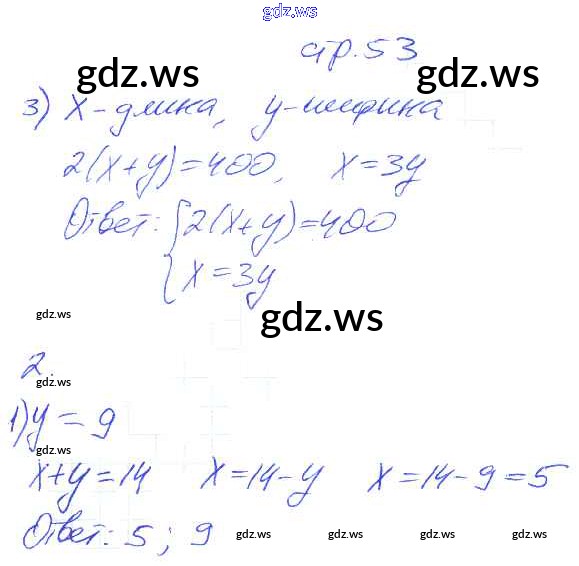 gdz.ws
стр.53
gdz.ws gdz.ws
3) x - длина, y - ширина
2(x+y)=400, x=3y
Ответ: {2(x+y)=400
{x=3y
gdz.ws gdz.ws
2.
gdz.ws
1) y = 9
gdz.ws
x+y=14 x=14-y x=14-9=5
Ответ: 5; 9 gdz.ws gdz.ws gdz.ws gdz.ws